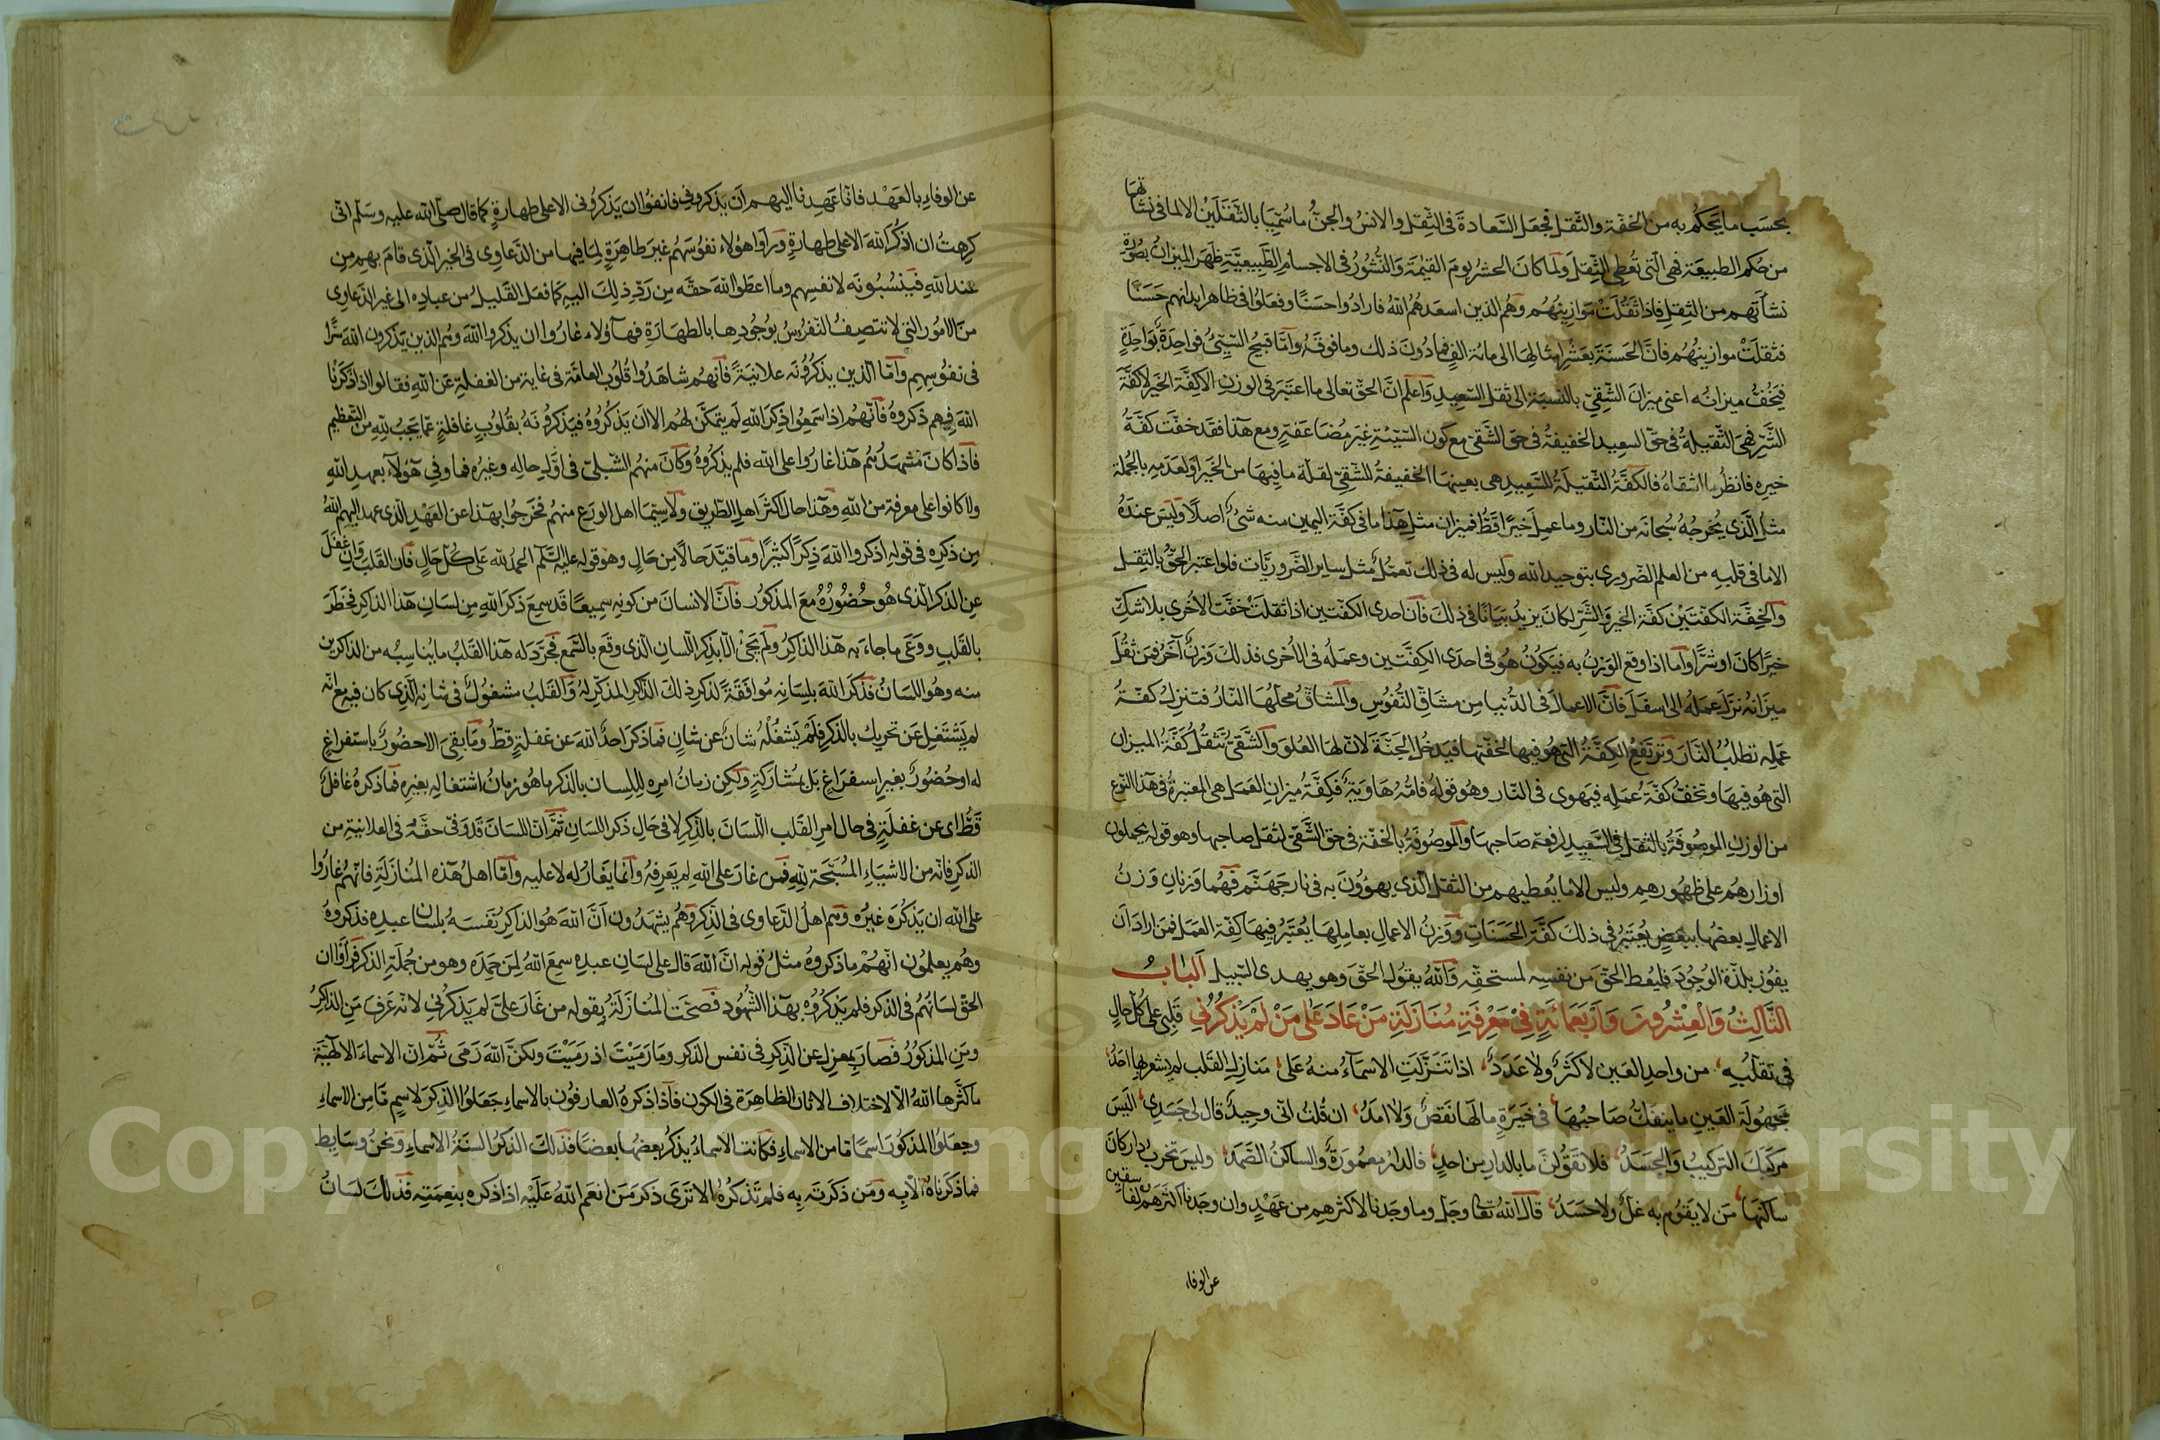 بحسب ما يحكم به من الخفة والثقل فجعل السعادة فى الثقل والانس والجنّ ما سمّيا بالثقلين الا لما فى نشأتهما
من حكم الطبيعة فهى التى تعطى الثقل ولما كان الحشر يوم القيمة والنشور فى الاجسام الطبيعيّة ظهر الميزان بصورة
نشأتهم من الثقل فاذا ثقلت موازينهم وهم الذين اسعدهم الله فارادوا حسنا وفعلوا فى ظاهر ابدانهم حسنا
فثقلت موازينهم فانّ الحسنة بعشر امثالها الى مائة الف فما دون ذلك وما فوقه وامّا قبيح السّيّئ فواحدة بواحدة
فيخفّ ميزانه اعنى ميزان الشقىّ بالنسبة الى ثقل السعيد واعلم انّ الحق تعالى ما اعتبر فى الوزن الا كفّة الخير لا كفّة
الشّر فهى الثقيلة فى حقّ السعيد الخفيفة فى حق الشقى مع كون السّيّئة غير مضاعفة ومع هذا فقد خفّت كفّة
خيره فانظر ما اشقاه فالكفّة الثقيلة للسّعيد هى بعينها الخفيفة للشقىّ لقلّة ما فيها من الخير او لعدمه بالجملة
مثل الّذى يخرجه سبحانه من النّار وما عمل خيرا قطّ فميزان مثل هذا ما فى كفّة اليمين منه شىء اصلا وليس عنده
الا ما فى قلبه من العلم الضرورى بتوحيد الله وليس له فى ذلك تعمّل مثل ساير الضّروريّات فلو اعتبر الحقّ بالثقل
والخفّة الكفّتين كفّة الخير والشّر لكان يزيد بيانا فى ذلك فانّ احدى الكفّتين اذا ثقلت خفّت الاخرى بلا شكّ
خيرا كان او شرّا وامّا اذا وقع الوزن به فيكون هو فى احدى الكفّتين وعمله فى الاخرى فذلك وزن آخر فمن ثقل
ميزانه نزل عمله الى اسفل فانّ الاعمال فى الدّنيا من مشاقّ النّفوس والمشاقّ محلّها النّار فتنزل كفّة
عمله تطلب النّار وترتفع الكفّة التى هو فيها لخفّتها فيدخل الجنّة لانّ لها العلوّ والشّقىّ تثقل كفّة الميزان
التى هو فيها وتخفّ كفّة عمله فيهوى فى النّار وهو قوله فامّه هاوية فكفّة ميزان العمل هى المعتبرة فى هذا النّوع
من الوزن الموصوفة بالثقل فى السّعيد لرفعة صاحبها والموصوفة بالخفّة فى حقّ الشّقىّ لثقل صاحبها وهو قوله يحملون
اوزارهم على ظهورهم وليس الا ما يعطيهم من الثقل الّذى يهوون به فى نار جهنّم فهما وزنان وزن
الاعمال بعضها ببعض يعتبر فى ذلك كفّة الحسنات ووزن الاعمال بعاملها يعتبر فيها كفّة العمل فمن اراد ان
يفوز بلذّة الوجود فليعط الحقّ من نفسه لمستحقّه والله يقول الحقّ وهو يهدى السّبيل الباب
الثّالث والعشرون واربعمائة فى معرفة منازلة من غار علىّ من لم يذكرنى قلبى على كلّ حال
فى تقلّبه ؛ من واحد العين لا كثر ولا عدد ؛ اذا تنزّلت الاسماء منه على ؛ منازل القلب لم يشعر بها احد ؛
مجهولة العين ما ينفكّ صاحبها ؛ فى حيرة ما لها نقص ولا امد ؛ ان قلت انى وحيد قال لى جسدى ؛ اليس
مركبك التركيب والجسد ؛ فلا تقولنّ ما بالدّار من احد ؛ فالدّار معمورة والساكن الصّمد ؛ وليس تخرب دار كان
ساكنها ؛ من لا يقوم به غلّ ولا حسد ؛ قال الله تعالى عزّ وجلّ وما وجدنا لاكثرهم من عهد وان وجدنا اكثرهم لفاسقين
عن الوفاء
عن الوفاء بالعهد فانّا عهدنا اليهم ان يذكرونى فانفوا ان يذكرونى الا على طهارة كما قال صلّى الله عليه وسلّم انّى
كرهت ان اذكر الله الا على طهارة وراوا هولاء نفوسهم غير طاهرة لما فيها من الدّعاوى فى الخير الّذى قام بهم من
عند الله فينسبونه لانفسهم وما اعطوا الله حقّه من ردّ ذلك اليه كما فعل القليل من عباده الى غير الدّعاوى
من الامور التى لا تتصف النّفوس بوجودها بالطهارة فهاؤلاء غاروا ان يذكروا الله وهم الذين يذكرون الله سرّا
فى نفوسهم وامّا الّذين يذكرونه علانية فانهم شاهدوا قلوب العامّة فى غاية من الغفلة عن الله فقالوا اذا ذكرنا
الله فيهم ذكروه فانّهم اذا سمعوا ذكر الله لم يتمكّن لهم الا ان يذكروه فيذكرونه بقلوب غافلة عمّا يجب لله من التعظيم
فاذا كان مشهدهم هذا غاروا على الله فلم يذكروه وكان منهم الشّبلى فى اوّل حاله وغيره فما وفى هؤلاء بعهد الله
ولا كانوا على معرفة من الله وهذا حال اكثر اهل الطريق ولا سيّما اهل الورع منهم فخرجوا بهذا عن العهد الّذى عهد اليهم الله
من ذكره فى قوله اذكروا الله ذكرا كثيرا وما قيّد حالا من حال وهو قوله عليه السّلم الحمد لله على كلّ حال فان القلب وان غفل
عن الذكر الّذى هو حضوره مع المذكور فانّ الانسان من كونه سميعا قد سمع ذكر الله من لسان هذا الذاكر فخطر
بالقلب ووعى ما جاء به هذا الذاكر ولم يجئ الا بذكر اللسان الّذى وقع بالسّمع فجرّد له هذا القلب ما يناسبه من الذاكرين
منه وهو اللسان فذكر الله بلسانه موافقة لذكر ذلك الذّاكر المذكّر له والقلب مشغول فى شانه الّذى كان فيه مع انّه
لم يشتغل عن تحريك بالذكر فلم يشغله شان عن شان فما ذكر احد الله عن غفلة قطّ وما بقى الا حضور باستفراغ
له او حضور بغير استفراغ بل مشاركة ولكن زمان امره للّسان بالذكر ما هو زمان اشتغاله بغيره فما ذكره غافل
قطّ اى عن غفلة فى حال امر القلب اللّسان بالذّكر لا فى حال ذكر اللسان ثمّ انّ اللسان قد وفى حقّه فى العلانية من
الذكر فانّه من الاشياء المسبّحة لله فمن غار على الله لم يعرفه وانما يغار له لا عليه وامّا اهل هذه المنازلة فانّهم غاروا
على الله ان يذكره غيره وهم اهل الدّعاوى فى الذّكر وهم يشهدون انّ الله هو الذّاكر نفسه بلسان عبده فذكروه
وهم يعلمون انّهم ما ذكروه مثل قوله انّ الله قال على لسان عبده سمع الله لمن حمده وهو من جملة الذكر فراوا ان
الحقّ لسانهم فى الذكر فلم يذكروه بهذا الشهود فصحّت المنازلة بقوله من غار علىّ لم يذكرنى لانّه عرف من الذّاكر
ومن المذكور فصار بمعزل عن الذكر فى نفس الذكر وما رميت اذ رميت ولكنّ الله رمى ثمّ انّ الاسماء الالهيّة
ما كثّرها الله الا لاختلاف الاثار الظاهرة فى الكون فاذا ذكره العارفون بالاسماء جعلوا الذّكر لاسم ما من الاسماء
وجعلوا المذكور اسما ما من الاسماء فكانت الاسماء يذكر بعضها بعضا فذلك الذكر السنة الاسماء ونحن وسايط
فما ذكرناه الا به ومن ذكرته به فلم تذكره الا ترى ذكر من انعم الله عليه اذا ذكره بنعمته فذلك لسان